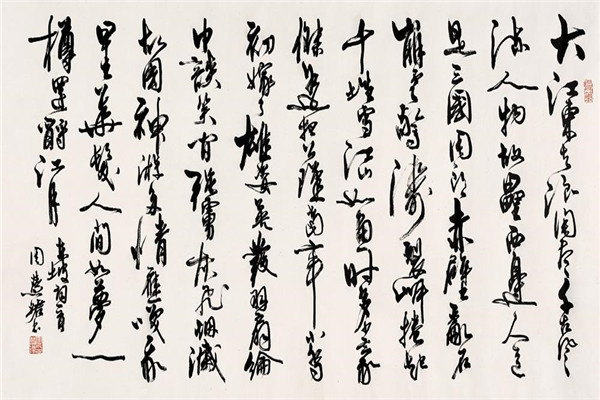 大江東去浪淘盡千古風
流人物故壘西邊人道
是三國周郎赤壁亂石
崩雲驚濤裂岸捲起
千堆雪江山如畫一時多少豪
傑遙想公瑾當年小喬
初嫁了雄姿英發羽扇綸
巾談笑間強虜灰飛烟滅
故國神游多情應笑我
早生華髮人間如夢一
樽還酹江月
東坡詞
周慧珺